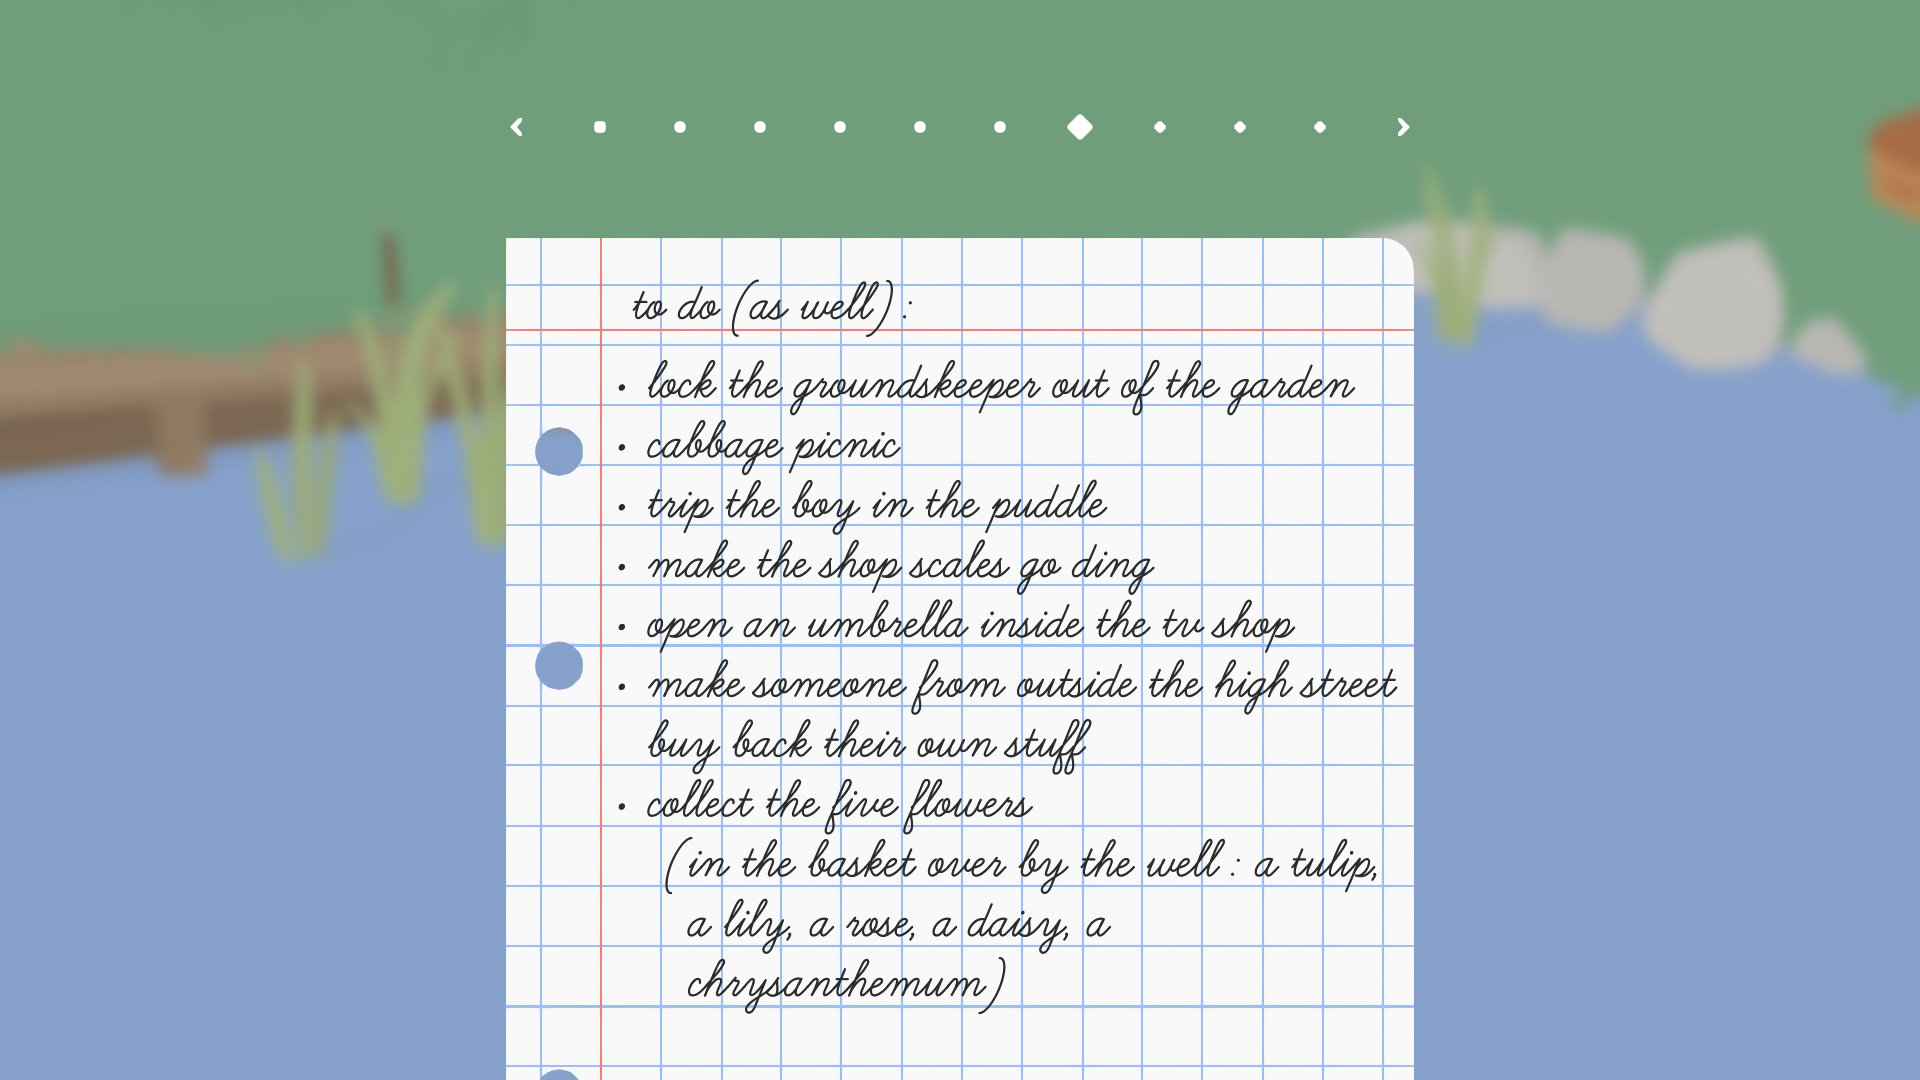 to do (as well):
• lock the groundskeeper out of the garden
• cabbage picnic
• trip the boy in the puddle
• make the shop scales go ding
• open an umbrella inside the tv shop
• make someone from outside the high street
buy back their own stuff
• collect the five flowers
(in the basket over by the well: a tulip,
a lily, a rose, a daisy, a
chrysanthemum)